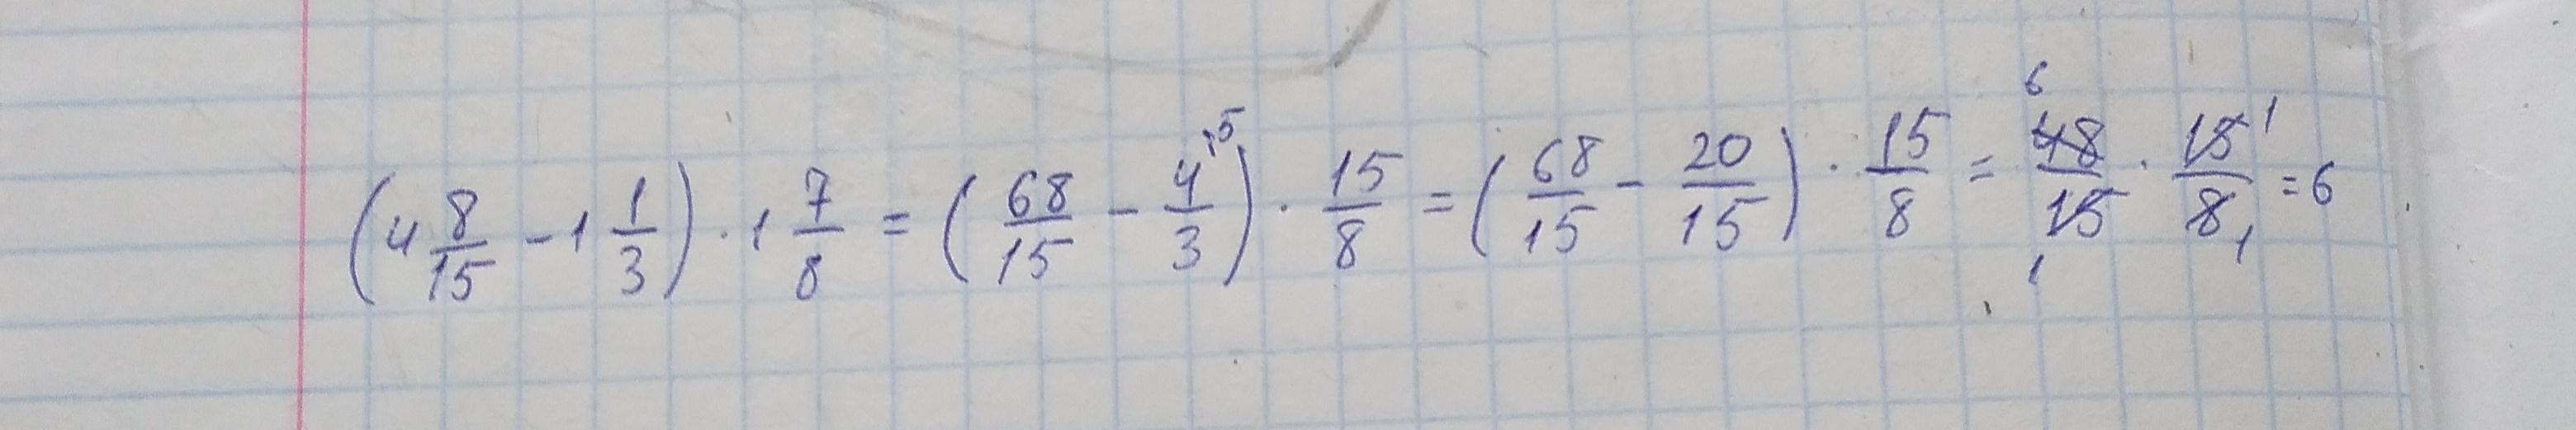 (4 8/15 - 1 1/3) · 1 7/8 = (68/15 - 4/3 ·5) · 15/8 = (68/15 - 20/15) · 15/8 = 48/15 6 1 · 15/8 1 1 = 6